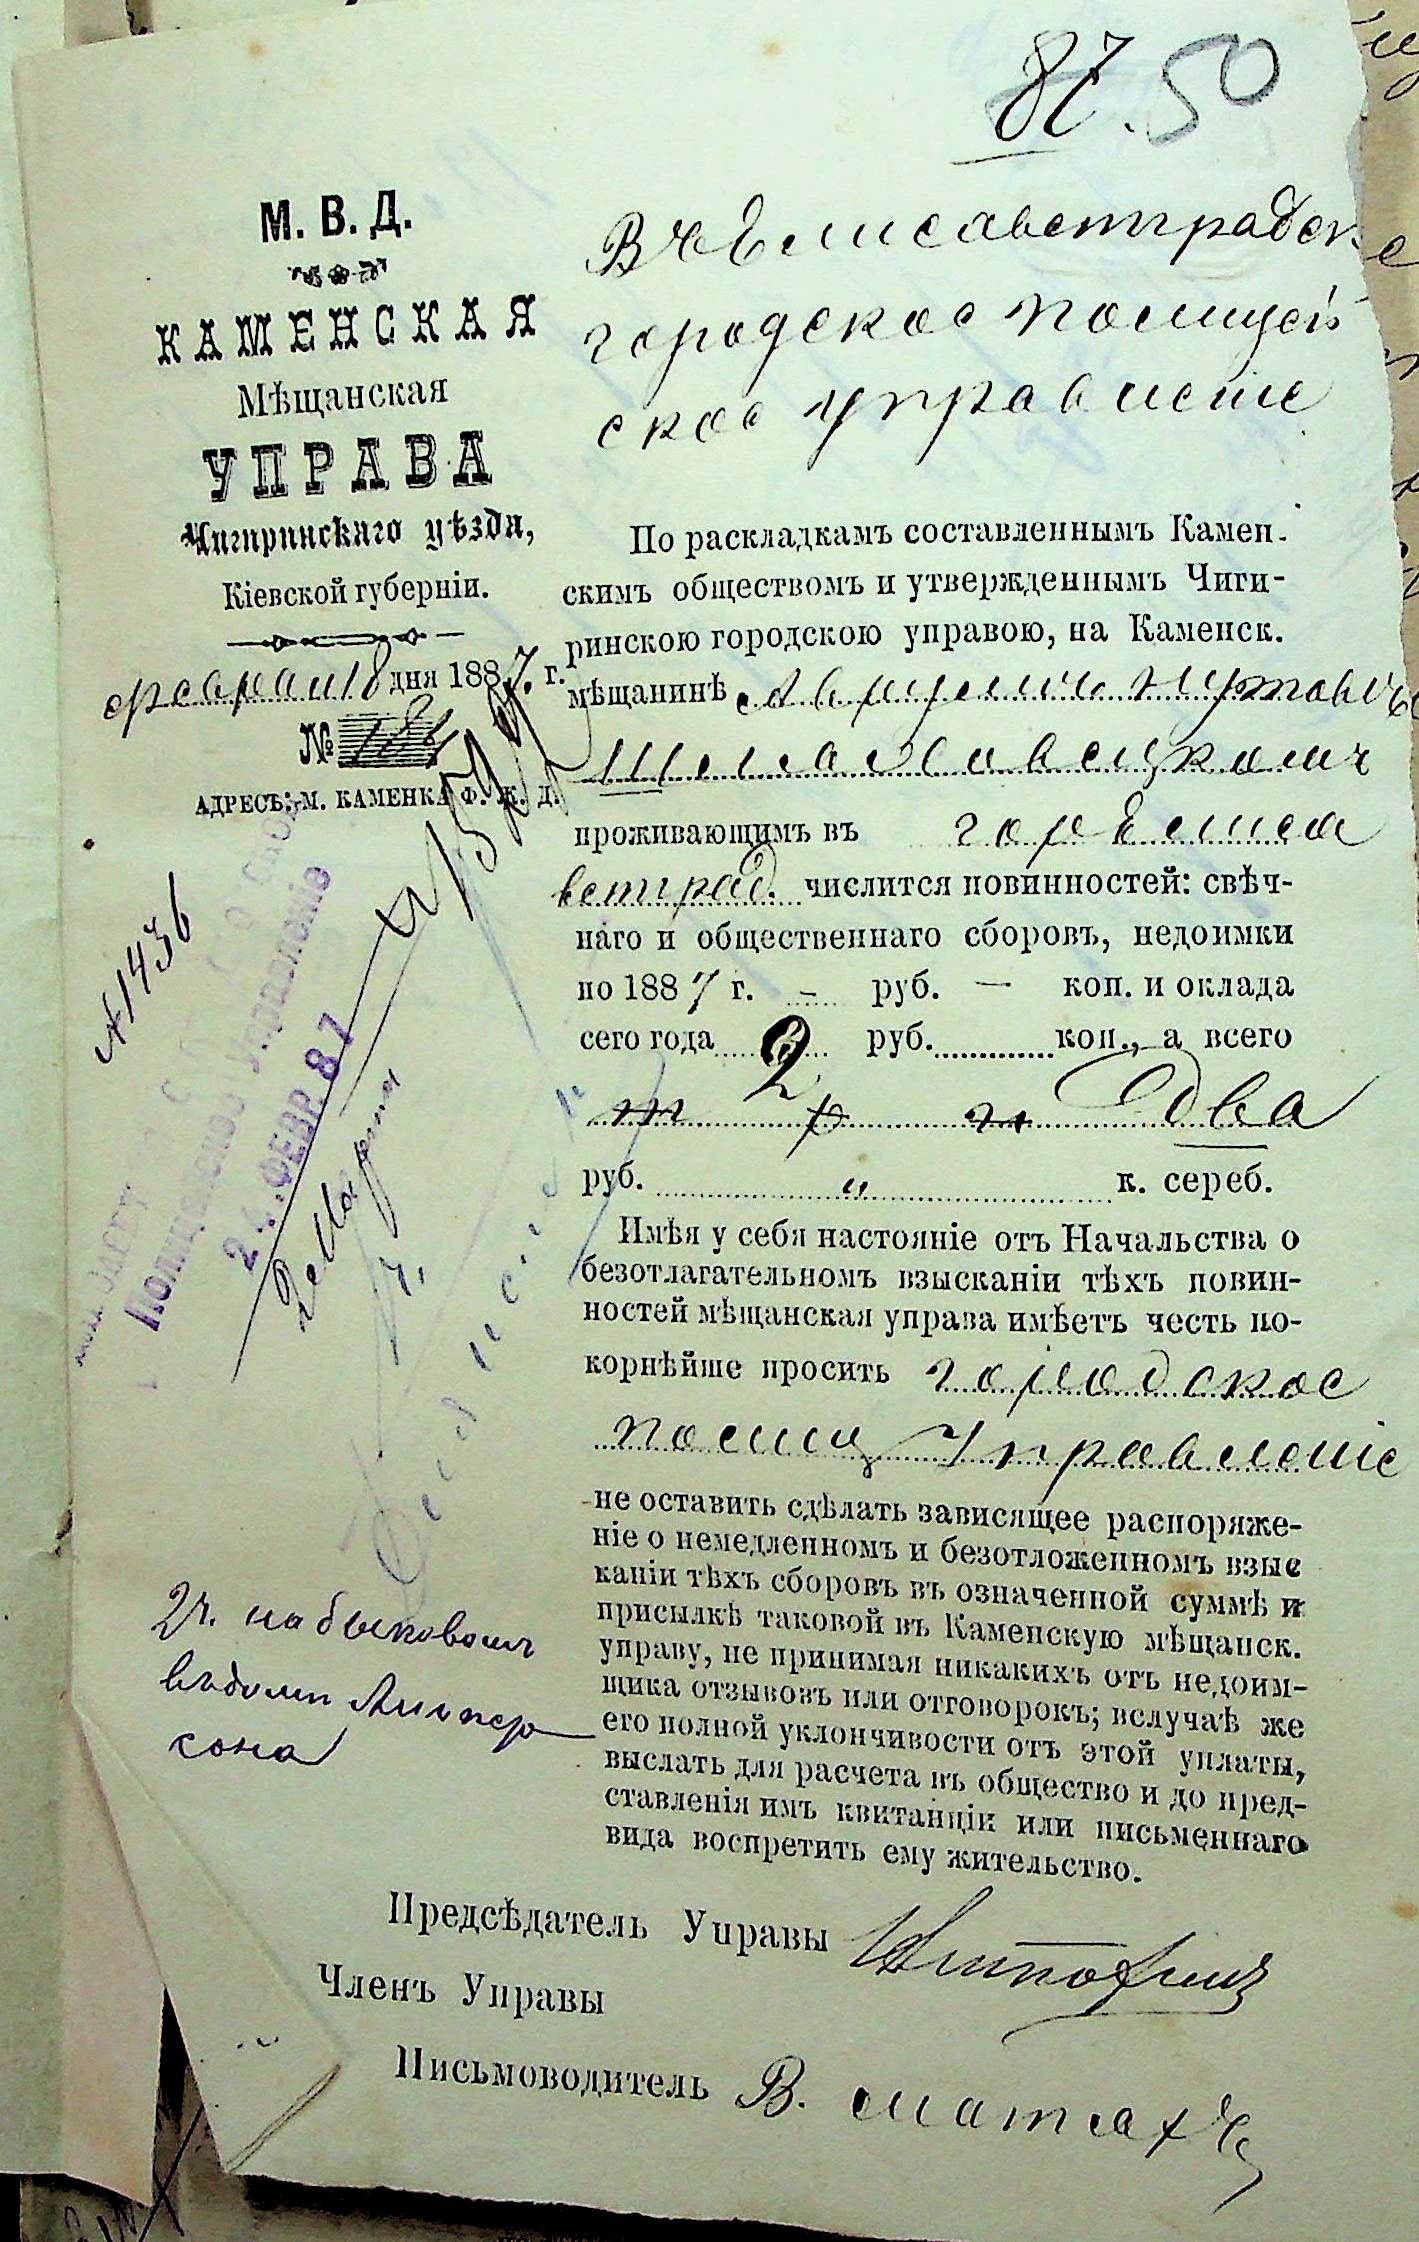 87. 50
М. В. Д.
КАМЕНСКАЯ
Мѣщанская
УПРАВА
Чигиринскаго уѣзда,
Кіевской губерніи.
февраля 18 дня 1887 г.
№ 184
АДРЕСЪ: М. КАМЕНКА Ф. Ж. Д.
В Елисаветградск.
городское полицей
ское управленіе
По раскладкамъ составленнымъ Камен-
скимъ обществомъ и утвержденнымъ Чиги-
ринскою городскою управою, на Каменск.
мѣщанинѣ
проживающимъ въ гор Елиса
ветград. числится повинностей: свѣч-
наго и общественнаго сборовъ, недоимки
по 1887 г. - руб. — коп. и оклада
сего года 2 руб. коп., а всего
два
руб. " к. сереб.
Имѣя у себя настояніе отъ Начальства о
безотлагательномъ взысканіи тѣхъ повин-
ностей мѣщанская управа имѣетъ честь по-
корнѣйше просить городское
полиц Управленіе
не оставить сдѣлать зависящее распоряже-
ніе о немедленномъ и безотложенномъ взыс
каніи тѣхъ сборовъ въ означенной суммѣ и
присылкѣ таковой въ Каменскую мѣщанск.
управу, не принимая никакихъ отъ недоим-
щика отзывовъ или отговорокъ; вслучаѣ же
его полной уклончивости отъ этой уплаты,
выслать для расчета въ общество и до пред-
ставленія имъ квитанціи или письменнаго
вида воспретить ему жительство.
№ 1436
Полицейское Управленіе
24 ФЕВР. 87
2 Марта
2 ч. на Быковой
сона
Предсѣдатель Управы
Членъ Управы
Письмоводитель В.